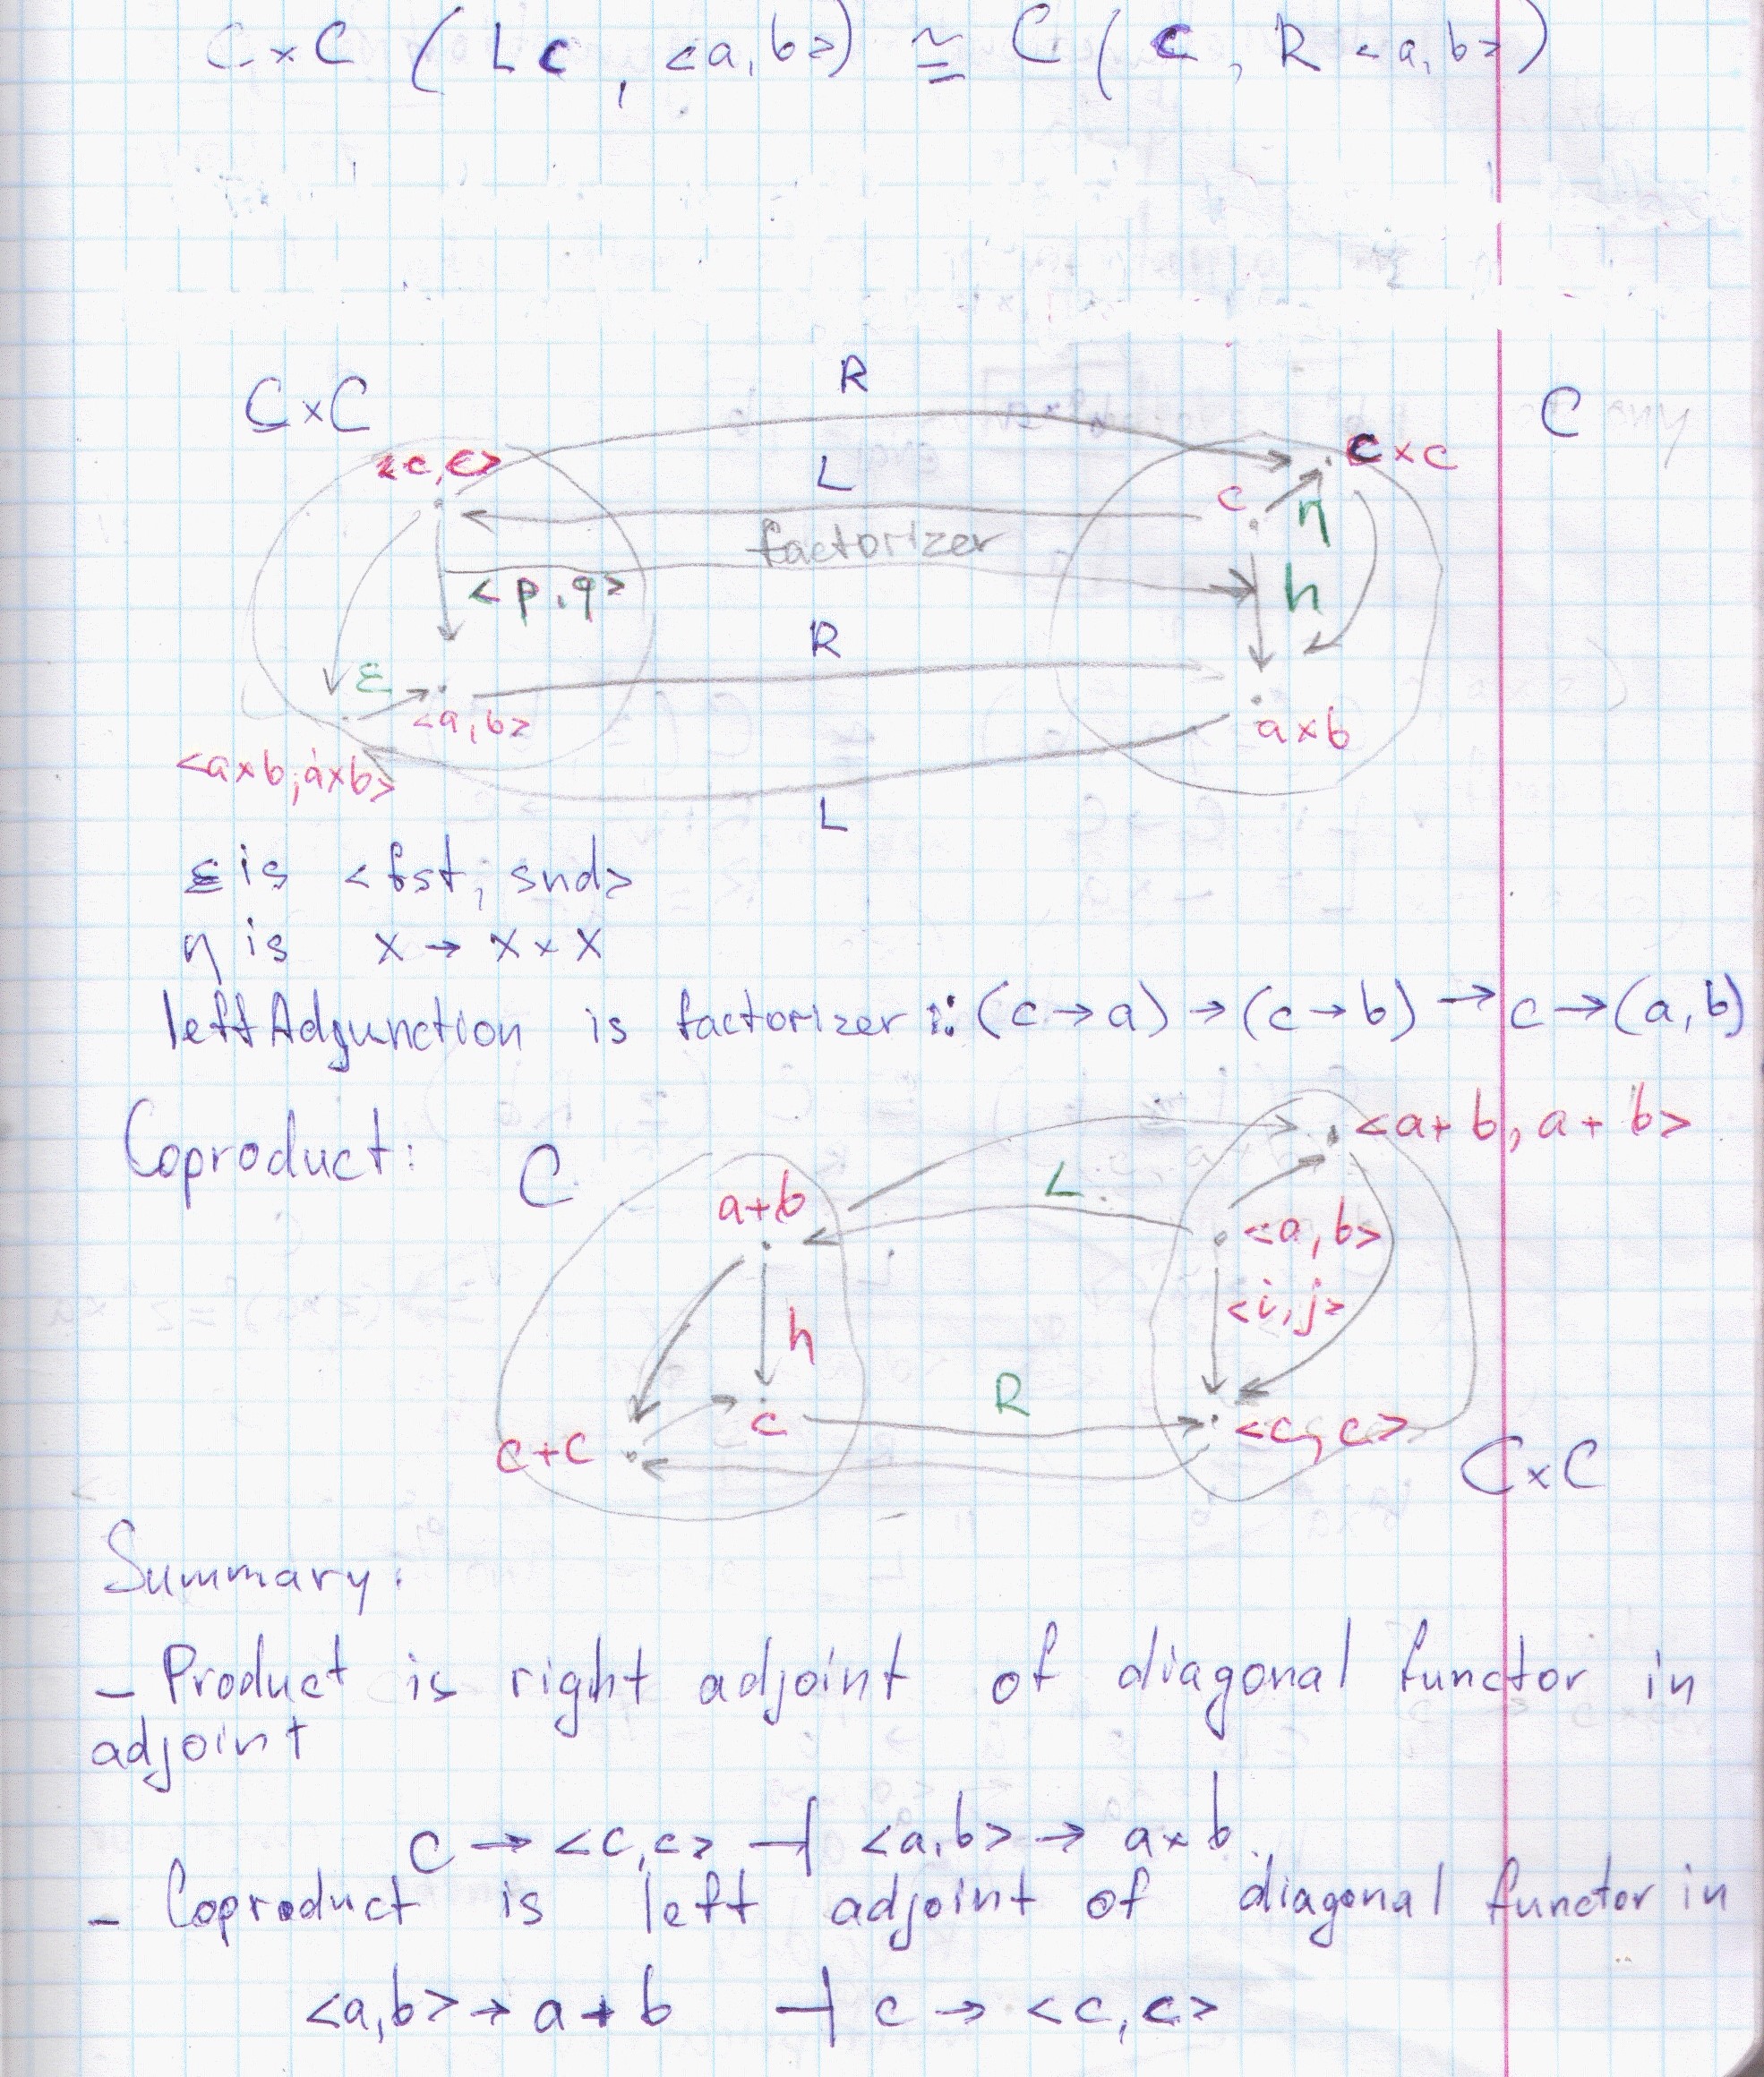 C×C ( Lc , <a,b>) ≅ C( c , R <a,b>)
R
C×C
C
<c,c>
c×c
L
c
η
factorizer
<p,q>
h
R
ε
<a,b>
a×b
<a×b,a×b>
L
ε is <fst, snd>
η is x → x×x
leftAdjunction is factorizer :: (c→a)→(c→b)→c→(a,b)
Coproduct:
C
<a+b,a+b>
L
a+b
<a,b>
<i,j>
h
R
c
<c,c>
c+c
C×C
Summary:
– Product is right adjoint of diagonal functor in
adjoint
c → <c,c> ⊣ <a,b> → a×b.
– Coproduct is left adjoint of diagonal functor in
<a,b> → a+b ⊣ c → <c,c>